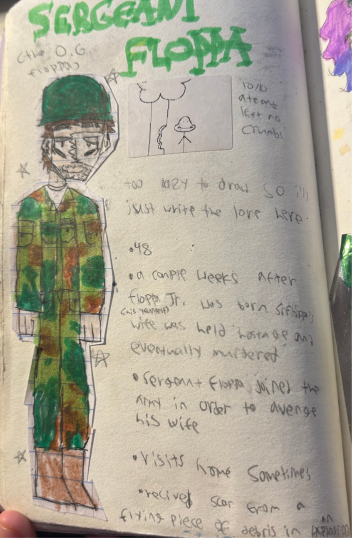 SERGEANT
FLOPPA
(the O.G.
floppa)
10/10
ate and
left no
crumbs
too lazy to draw so i'll
just write the lore here.
•48
•a couple weeks after
floppa Jr. was born s.floppa's
wife was held hostage and
eventually murdered
•Sergeant floppa joined the
army in order to avenge
his wife
•visits home sometimes
•recived scar from a
flying piece of debris in an explosion